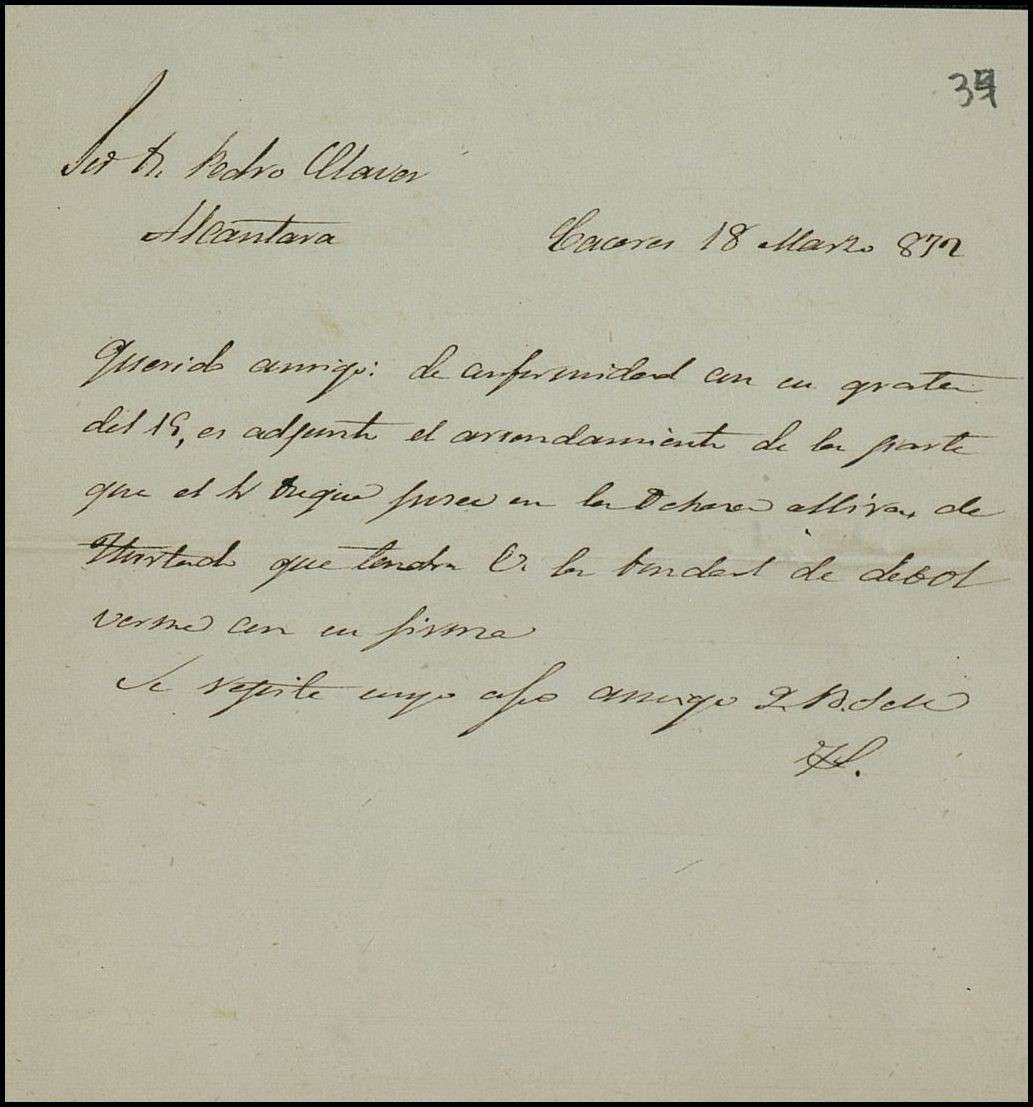 39
Sor Dn Pedro Claver
Alcantara Caceres 18 Marzo 872
Querido amigo: de conformidad con su grata
del 15, es adjunto el arrendamiento de la parte
que el Sr Duque posee en la Dehesa de
Hurtado que tendra V. la bondad de debol
verme con su firma
Se repite suyo afmo amigo Q. B. S. M.